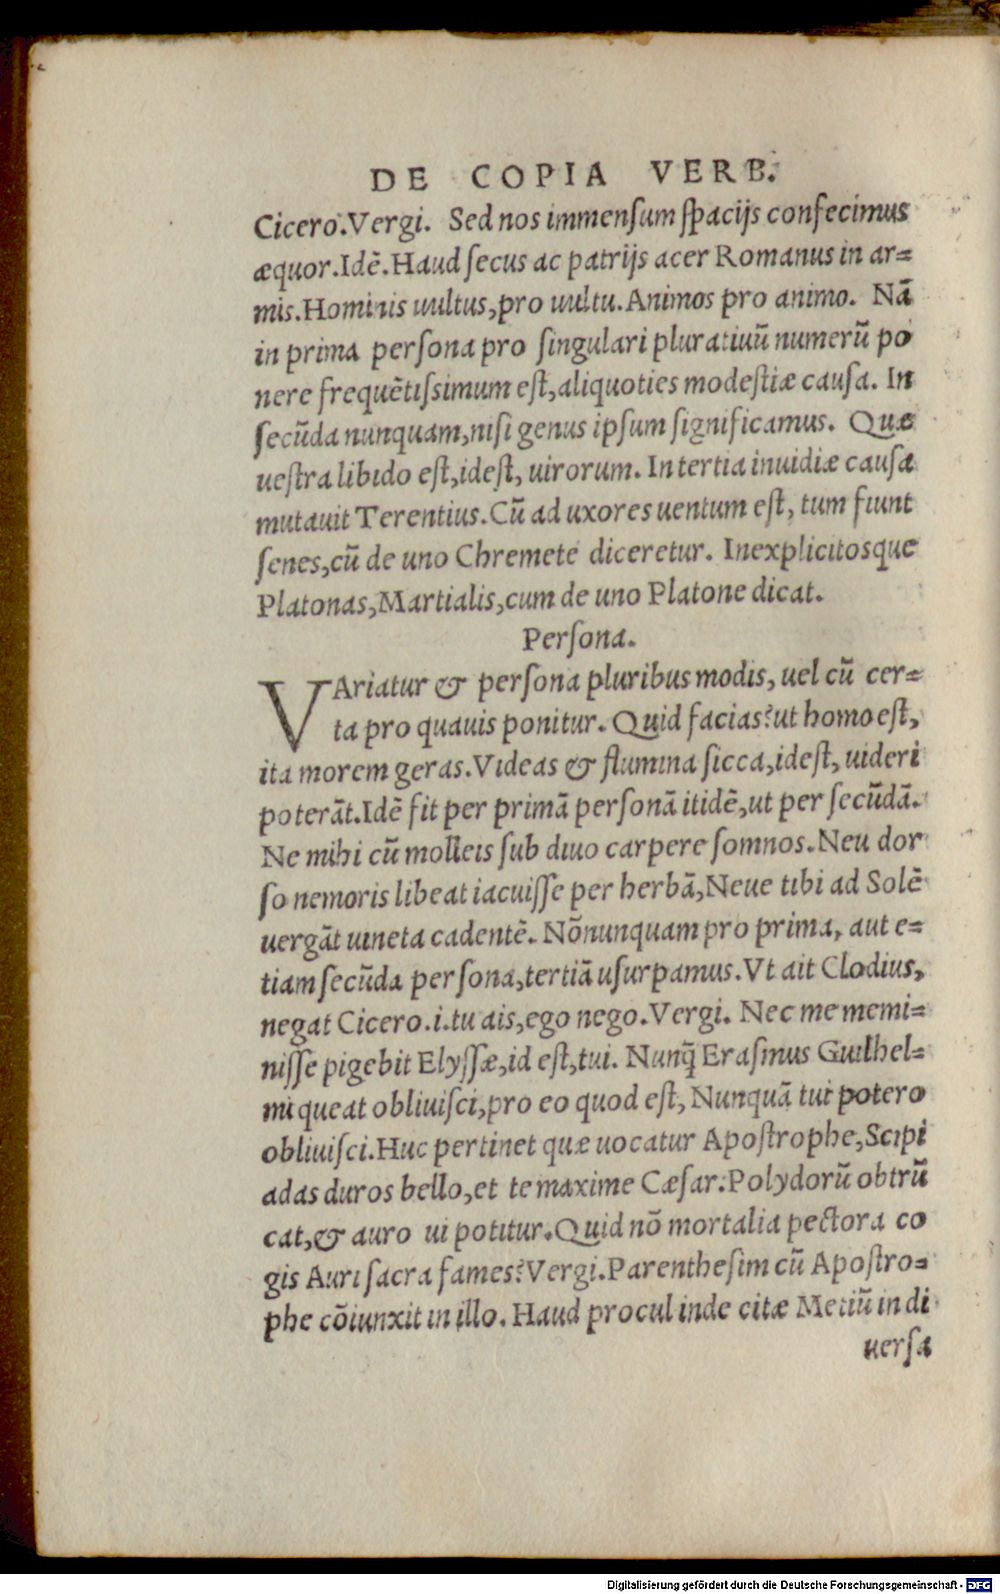 DE COPIA VERB.
Cicero. Vergi. Sed nos immensum spacijs confecimus
æquor. Idẽ. Haud secus ac patrijs acer Romanus in ar=
mis. Hominis uultus, pro uultu. Animos pro animo. Nã
in prima persona pro singulari pluratiuũ numerũ po
nere frequẽtissimum est, aliquoties modestiæ causa. In
secũda nunquam, nisi genus ipsum significamus. Quæ
uestra libido est, idest, uirorum. In tertia inuidiæ causa
mutauit Terentius. Cũ ad uxores uentum est, tum fiunt
senes, cũ de uno Chremete diceretur. Inexplicitosque
Platonas, Martialis, cum de uno Platone dicat.
Persona.
VAriatur & persona pluribus modis, uel cũ cer=
ta pro quauis ponitur. Quid facias? ut homo est,
ita morem geras. Videas & flumina sicca, idest, uideri
poterãt. Idẽ fit per primã personã itidẽ, ut per secũdã.
Ne mihi cũ molleis sub diuo carpere somnos. Neu dor
so nemoris libeat iacuisse per herbã, Neue tibi ad Solẽ
uergãt uineta cadentẽ. Nõnunquam pro prima, aut e=
tiam secũda persona, tertiã usurpamus. Vt ait Clodius,
negat Cicero .i. tu ais, ego nego. Vergi. Nec me memi=
nisse pigebit Elyssæ, id est, tui. Nunq̃ Erasmus Guilhel=
mi queat obliuisci, pro eo quod est, Nunquã tui potero
obliuisci. Huc pertinet quæ uocatur Apostrophe, Scipi
adas duros bello, et te maxime Cæsar. Polydorũ obtrũ
cat, & auro ui potitur. Quid nõ mortalia pectora co
gis Auri sacra fames? Vergi. Parenthesim cũ Apostro=
phe cõiunxit in illo. Haud procul inde citæ Metiũ in di
uersa
Digitalisierung gefördert durch die Deutsche Forschungsgemeinschaft - DFG